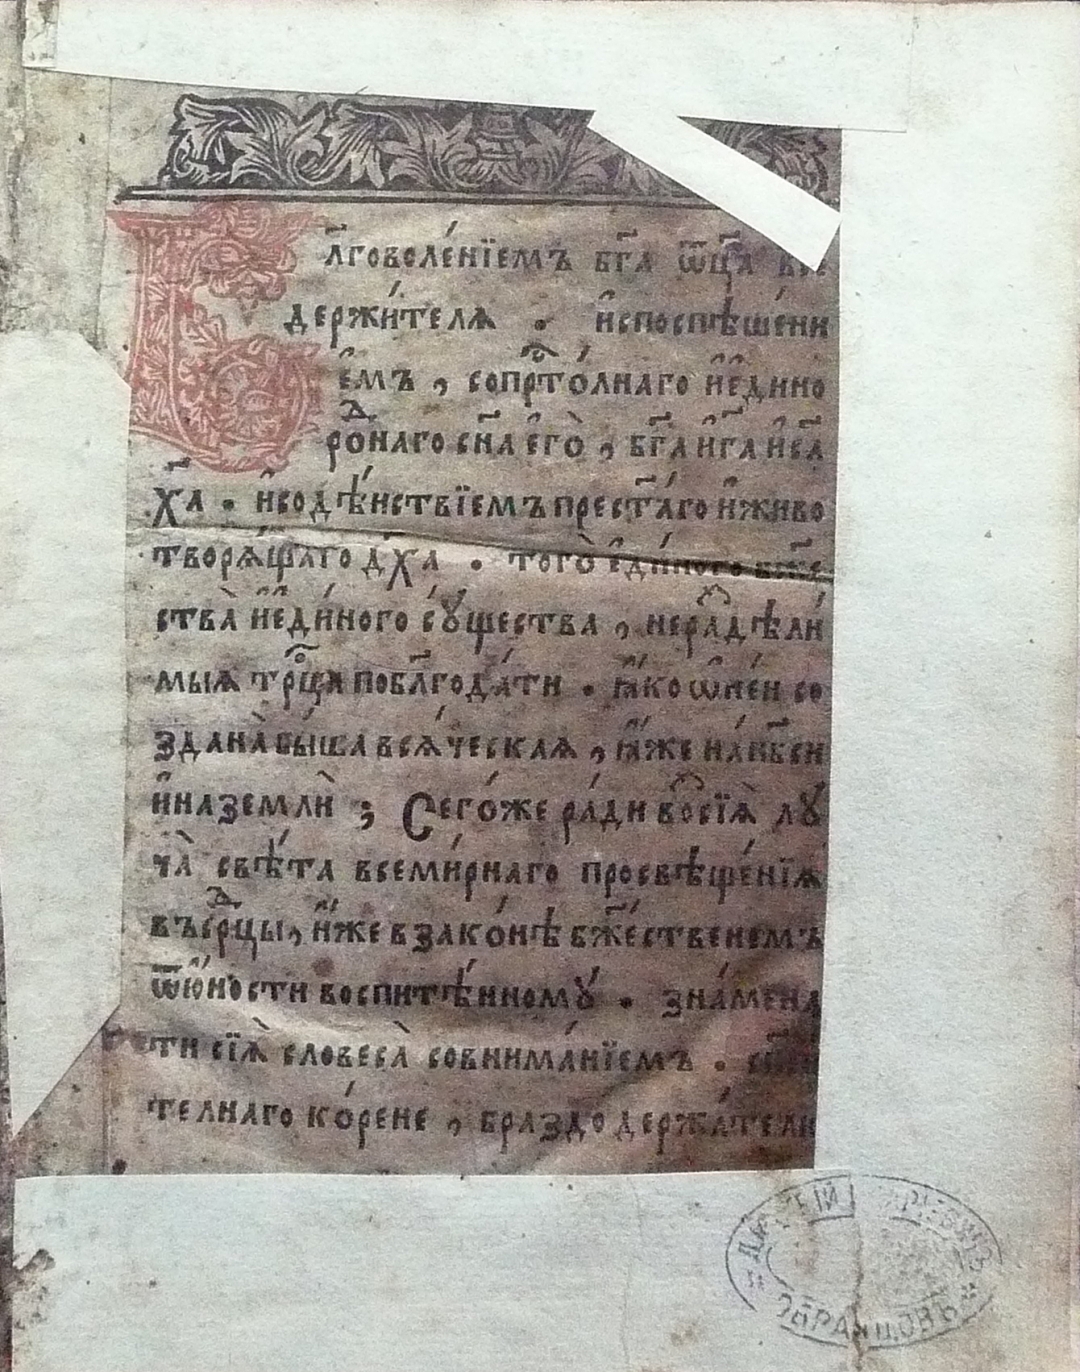 Бл҃говоле́нїемъ бг҃а ѿц҃а все
держи́телѧ . и҆споспѣше́ни
е҆мъ , сопрⷭ҇то́лнаго и҆е҆дино
ро́днаго сн҃а є҆гѡ̀ , бг҃а и҆гд҃а и҆сп҃а
х҃а . и҆содѣ́иствїемъ прест҃а́го и҆живо
творѧ́щаго дх҃а . того̀ є҆ди́ного бж҃е
ства̀ и҆е҆ди́ного сꙋ́щества , нераздѣли́
мыѧ трⷪ҇цы побл҃года́ти . ꙗ҆́коѡ҆не́и со
здана̀бы́ша всѧ́ческаѧ , ꙗ҆́же нан҃бс́и
и҆наземлѝ ; Сего́же ра́ди возсїѧ̀ лꙋ
ча̀ свѣ́та всеми́рнаго просвѣще́нїѧ
въсрⷣцы , и҆́же взако́нѣ бж҃е́ственемъ
ѿю҆́ности воспитѣ́нномꙋ . зна́мена
ти сїѧ̀ словеса̀ совнима́нїемъ .
телнаго ко́рене , браздодержа́тели
ОБРАЗЦОВЪ